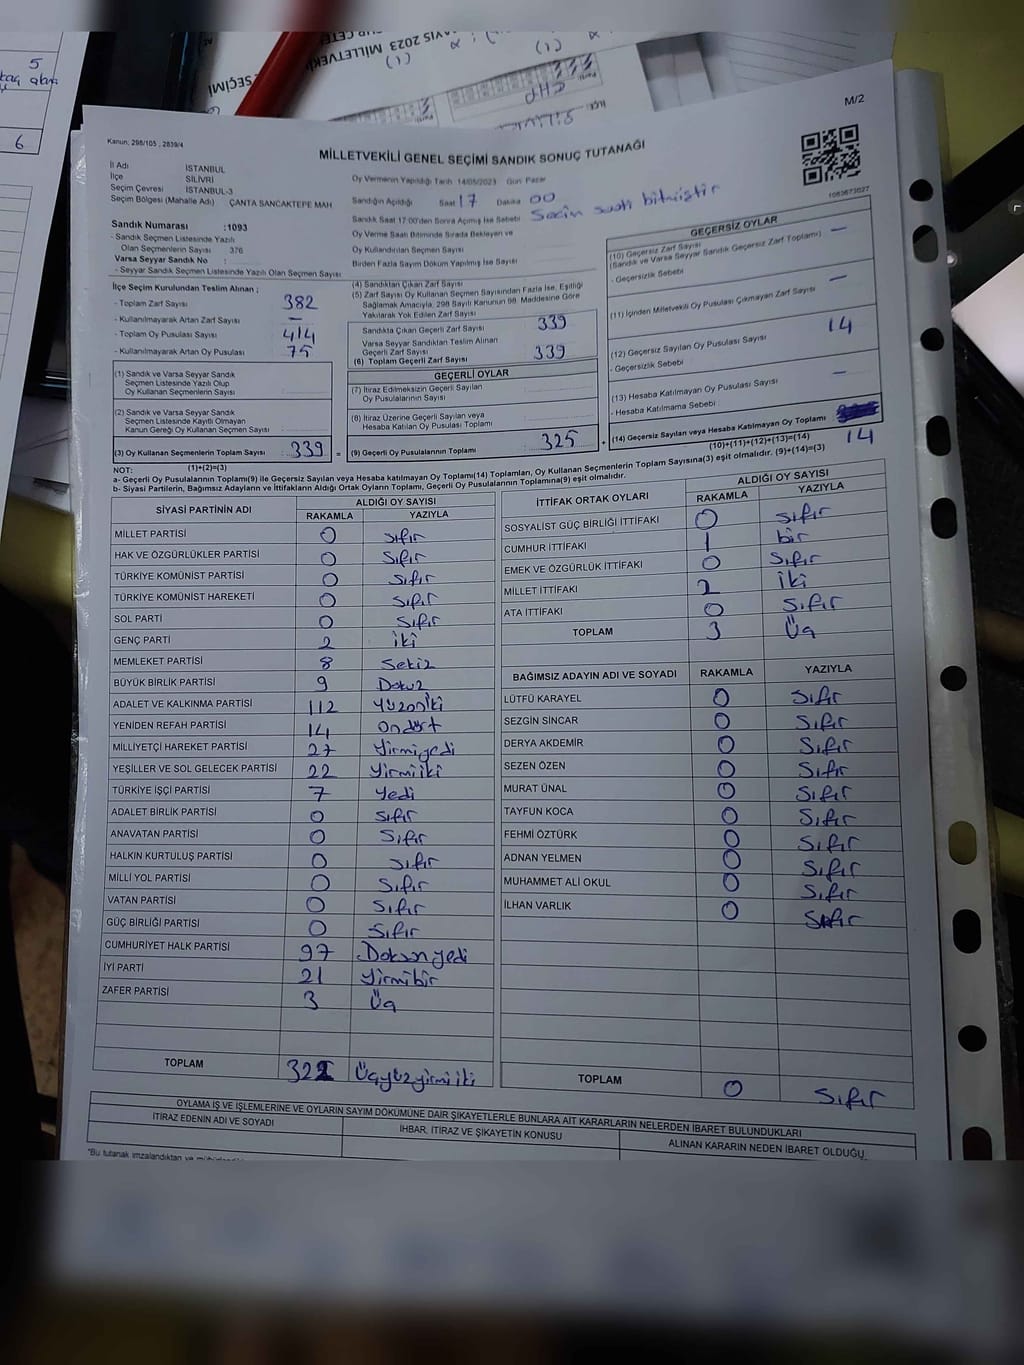 5
6
M/2
Kanun; 298/105 , 2839/4
MİLLETVEKİLİ GENEL SEÇİMİ SANDIK SONUÇ TUTANAĞI
1063673027
İl Adı İSTANBUL
İlçe SİLİVRİ
Seçim Çevresi İSTANBUL-3
Seçim Bölgesi (Mahalle Adı) ÇANTA SANCAKTEPE MAH
Oy Vermenin Yapıldığı Tarih 14/05/2023 Gün Pazar
Sandığın Açıldığı Saat 17 Dakika 00
Sandık Saat 17:00'den Sonra Açılmış İse Sebebi Seçim saati bitmiştir
Oy Verme Saati Bitiminde Sırada Bekleyen ve
Oy Kullandırılan Seçmen Sayısı
Birden Fazla Sayım Döküm Yapılmış İse Sayısı
Sandık Numarası :1093
- Sandık Seçmen Listesinde Yazılı
Olan Seçmenlerin Sayısı 376
Varsa Seyyar Sandık No :
- Seyyar Sandık Seçmen Listesinde Yazılı Olan Seçmen Sayısı
İlçe Seçim Kurulundan Teslim Alınan ;
- Toplam Zarf Sayısı 382
- Kullanılmayarak Artan Zarf Sayısı —
- Toplam Oy Pusulası Sayısı 414
- Kullanılmayarak Artan Oy Pusulası 75
(1) Sandık ve Varsa Seyyar Sandık
Seçmen Listesinde Yazılı Olup
Oy Kullanan Seçmenlerin Sayısı :
(2) Sandık ve Varsa Seyyar Sandık
Seçmen Listesinde Kayıtlı Olmayan
Kanun Gereği Oy Kullanan Seçmen Sayısı :
(3) Oy Kullanan Seçmenlerin Toplam Sayısı 339 =
(1)+(2)=(3)
(4) Sandıktan Çıkan Zarf Sayısı
(5) Zarf Sayısı Oy Kullanan Seçmen Sayısından Fazla İse, Eşitliği
Sağlamak Amacıyla, 298 Sayılı Kanunun 98. Maddesine Göre
Yakılarak Yok Edilen Zarf Sayısı
Sandıkta Çıkan Geçerli Zarf Sayısı 339
Varsa Seyyar Sandıktan Teslim Alınan
Geçerli Zarf Sayısı
(6) Toplam Geçerli Zarf Sayısı 339
GEÇERLİ OYLAR
(7) İtiraz Edilmeksizin Geçerli Sayılan
Oy Pusulalarının Sayısı
(8) İtiraz Üzerine Geçerli Sayılan veya
Hesaba Katılan Oy Pusulası Toplamı
(9) Geçerli Oy Pusulalarının Toplamı 325 +
GEÇERSİZ OYLAR
(10) Geçersiz Zarf Sayısı —
(Sandık ve Varsa Seyyar Sandık Geçersiz Zarf Toplamı)
- Geçersizlik Sebebi
(11) İçinden Milletvekili Oy Pusulası Çıkmayan Zarf Sayısı —
(12) Geçersiz Sayılan Oy Pusulası Sayısı 14
- Geçersizlik Sebebi :
(13) Hesaba Katılmayan Oy Pusulası Sayısı —
- Hesaba Katılmama Sebebi :
(14) Geçersiz Sayılan veya Hesaba Katılmayan Oy Toplamı 14
(10)+(11)+(12)+(13)=(14)
NOT:
a- Geçerli Oy Pusulalarının Toplamı(9) ile Geçersiz Sayılan veya Hesaba katılmayan Oy Toplamı(14) Toplamları, Oy Kullanan Seçmenlerin Toplam Sayısına(3) eşit olmalıdır. (9)+(14)=(3)
b- Siyasi Partilerin, Bağımsız Adayların ve İttifakların Aldığı Ortak Oyların Toplamı, Geçerli Oy Pusulalarının Toplamına(9) eşit olmalıdır.
SİYASİ PARTİNİN ADI ALDIĞI OY SAYISI
RAKAMLA YAZIYLA
MİLLET PARTİSİ 0 sıfır
HAK VE ÖZGÜRLÜKLER PARTİSİ 0 sıfır
TÜRKİYE KOMÜNİST PARTİSİ 0 sıfır
TÜRKİYE KOMÜNİST HAREKETİ 0 sıfır
SOL PARTİ 0 sıfır
GENÇ PARTİ 2 iki
MEMLEKET PARTİSİ 8 Sekiz
BÜYÜK BİRLİK PARTİSİ 9 Dokuz
ADALET VE KALKINMA PARTİSİ 112 Yüzoniki
YENİDEN REFAH PARTİSİ 14 Ondört
MİLLİYETÇİ HAREKET PARTİSİ 27 Yirmiyedi
YEŞİLLER VE SOL GELECEK PARTİSİ 22 Yirmiiki
TÜRKİYE İŞÇİ PARTİSİ 7 Yedi
ADALET BİRLİK PARTİSİ 0 sıfır
ANAVATAN PARTİSİ 0 Sıfır
HALKIN KURTULUŞ PARTİSİ 0 sıfır
MİLLİ YOL PARTİSİ 0 Sıfır
VATAN PARTİSİ 0 Sıfır
GÜÇ BİRLİĞİ PARTİSİ 0 Sıfır
CUMHURİYET HALK PARTİSİ 97 Doksanyedi
İYİ PARTİ 21 Yirmibir
ZAFER PARTİSİ 3 Üç
TOPLAM 322 Üçyüzyirmiiki
İTTİFAK ORTAK OYLARI ALDIĞI OY SAYISI
RAKAMLA YAZIYLA
SOSYALİST GÜÇ BİRLİĞİ İTTİFAKI 0 sıfır
CUMHUR İTTİFAKI 1 bir
EMEK VE ÖZGÜRLÜK İTTİFAKI 0 Sıfır
MİLLET İTTİFAKI 2 iki
ATA İTTİFAKI 0 Sıfır
TOPLAM 3 Üç
BAĞIMSIZ ADAYIN ADI VE SOYADI RAKAMLA YAZIYLA
LÜTFÜ KARAYEL 0 Sıfır
SEZGİN SİNCAR 0 Sıfır
DERYA AKDEMİR 0 Sıfır
SEZEN ÖZEN 0 Sıfır
MURAT ÜNAL 0 Sıfır
TAYFUN KOCA 0 Sıfır
FEHMİ ÖZTÜRK 0 Sıfır
ADNAN YELMEN 0 Sıfır
MUHAMMET ALİ OKUL 0 Sıfır
İLHAN VARLIK 0 Sıfır
TOPLAM 0 Sıfır
OYLAMA İŞ VE İŞLEMLERİNE VE OYLARIN SAYIM DÖKÜMÜNE DAİR ŞİKAYETLERLE BUNLARA AİT KARARLARIN NELERDEN İBARET BULUNDUKLARI
İTİRAZ EDENİN ADI VE SOYADI
İHBAR, İTİRAZ VE ŞİKAYETİN KONUSU
ALINAN KARARIN NEDEN İBARET OLDUĞU
"Bu tutanak imzalandıktan ve